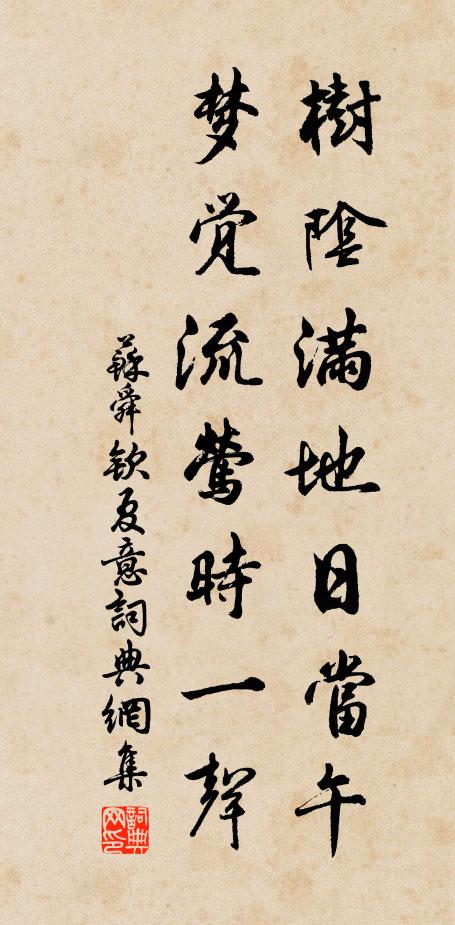 樹陰滿地日當午
梦觉流莺時一聲
蘇舜欽夏意詞典網集
詞典网印